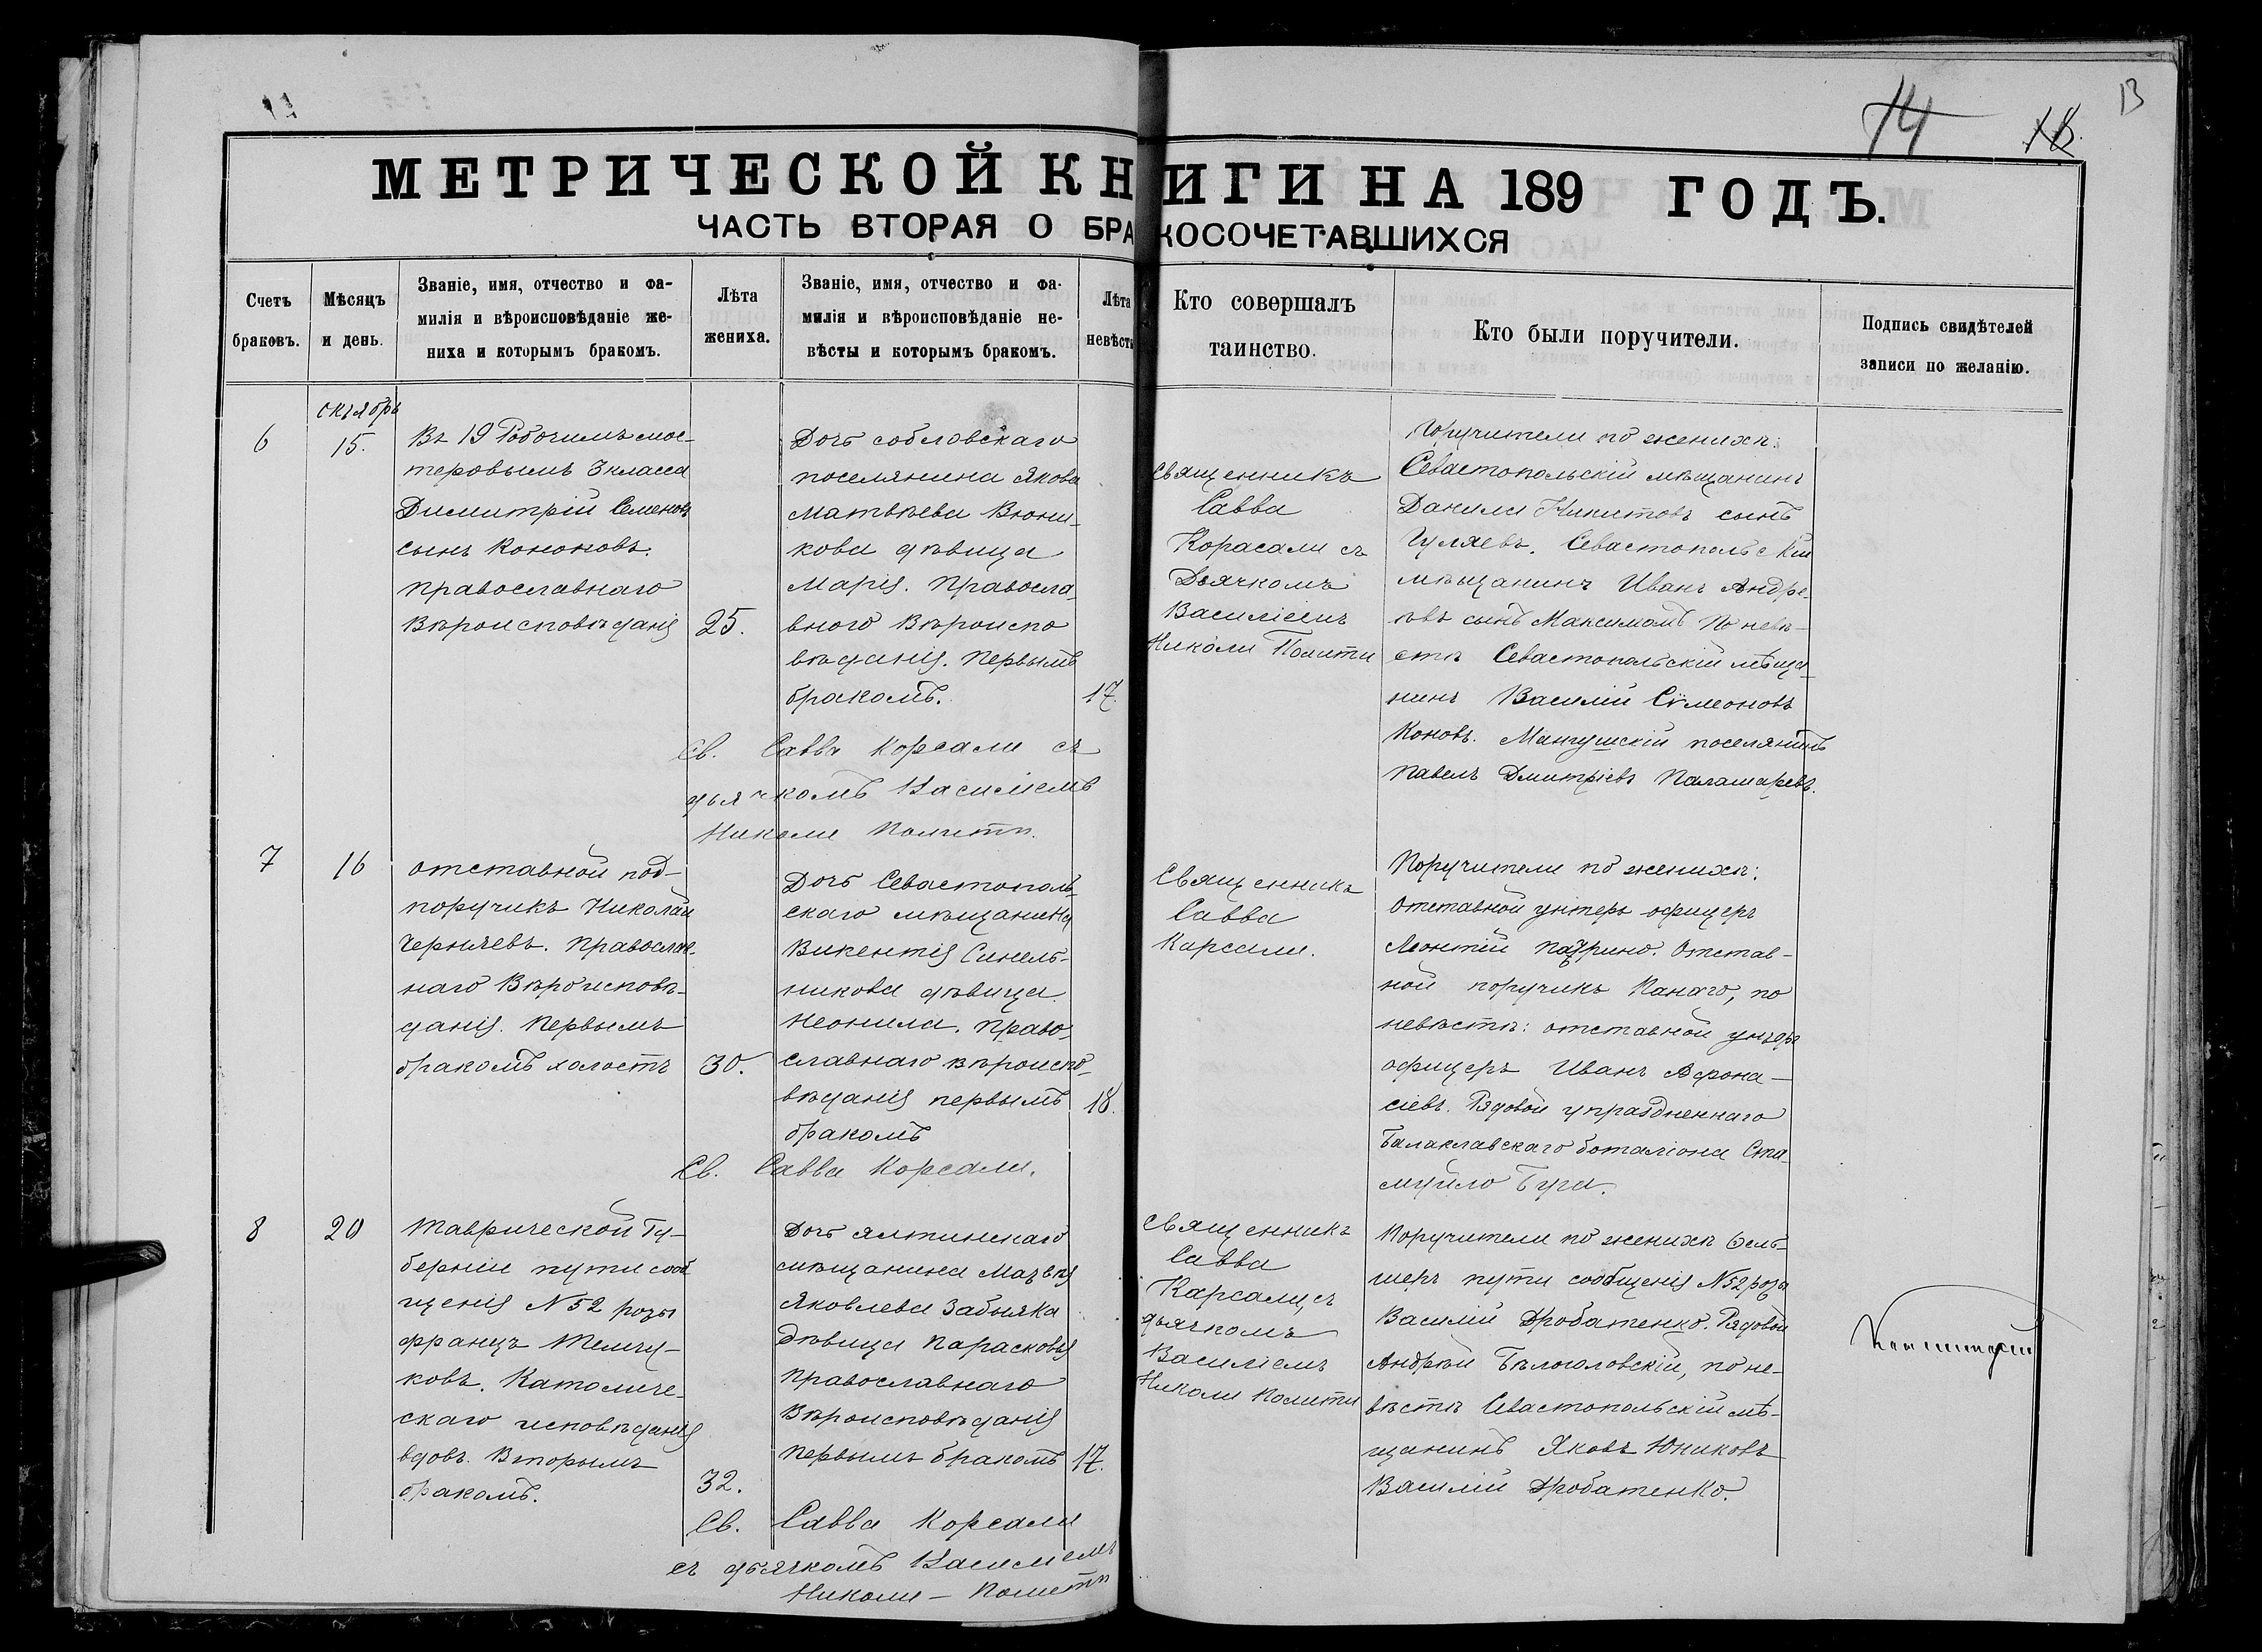 14
18.
13
МЕТРИЧЕСКОЙ КНИГИ НА 189 ГОДЪ.
ЧАСТЬ ВТОРАЯ О БРАКОСОЧЕТАВШИХСЯ
Счетъ
браковъ.
Мѣсяцъ
и день.
Званіе, имя, отчество и фа-
милія и вѣроисповѣданіе же-
ниха и которымъ бракомъ.
Лѣта
жениха.
Званіе, имя, отчество и фа-
милія и вѣроисповѣданіе не-
вѣсты и которымъ бракомъ.
Лѣта
невѣсты
Кто совершалъ
таинство.
Кто были поручители.
Подпись свидѣтелей
записи по желанію.
6
октябрь
15.
Въ 19 Рабочимъ мос-
теровымъ 3 класса
Димитрій Семеновъ
сынъ Кононовъ.
Православнаго
Вѣроисповѣданія
25.
Дочь собловскаго
поселянина Якова
Матвѣева Вюни-
кова дѣвица
Марія. Правосла-
вного Вѣроиспо
вѣданія. Первымъ
бракомъ.
17.
Священникъ
Савва
Корасали съ
Дьячкомъ
Василіемъ
Николи Полити
Поручители по женихѣ:
Севастопольскій мѣщанинъ
Данила Никитовъ сынъ
Гуляевъ. Севастопольскій
мѣщанинъ Иванъ Андре-
евъ сынъ Максимовъ По невѣ-
стѣ Севастопольскій мѣща-
нинъ Василій Сѵмеоновъ
Коновъ. Мангушскій поселянинъ
Павелъ Дмитріевъ Паламаревъ.
Св. Савва Корсали съ
дьячкомъ Василіемъ
Николи Политп.
7
16
отставной под-
поручикъ Николай
Чернлевъ. Православ-
наго Вѣроисповѣ-
данія. Первымъ
бракомъ холостъ
30.
Дочь Севастополь-
скаго мѣщанина
Викентія Синель-
никова дѣвица
Неонила. Право-
славнаго вѣроиспо-
вѣданія первымъ
бракомъ
18.
Священникъ
Савва
Карсали.
Поручители по женихѣ:
Отставной унтеръ офицеръ
Леонтій Отстав-
ной поручикъ Канаго, по
невѣстѣ: отставной унтеръ
офицеръ Иванъ Афона-
сіевъ. Рядовой упраздненнаго
Балаклавскаго баталіона Ста-
муило Буга.
Св. Савва Корсали.
8
20
Таврической Гу-
берніи пути сооб
щенія N 52 розы
францъ Телму-
ковъ. Католиче-
скаго исповѣданія
вдовъ. Вторымъ
бракомъ.
32.
Дочь ялтинскаго
мѣщанина Матвѣя
Яковлева Забыяка
Дѣвица Парасковья
Православнаго
Вѣроисповѣданія
Первымъ бракомъ
17.
Священникъ
Савва
Карсали, съ
дьячкомъ
Василіемъ
Николи Политы
Поручители по женихѣ Ѳель-
шеръ пути сообщенія N 52 розы
Василій Дробатенко. Рядовой
Андрѣй Бѣлоголовскій, по не-
вѣстѣ Севастопольскій мѣ-
щанинъ Яковъ Юниковъ
Василій Дробатенко.
Св. Савва Корсали
съ дьячкомъ Василіемъ
Николи - Политп